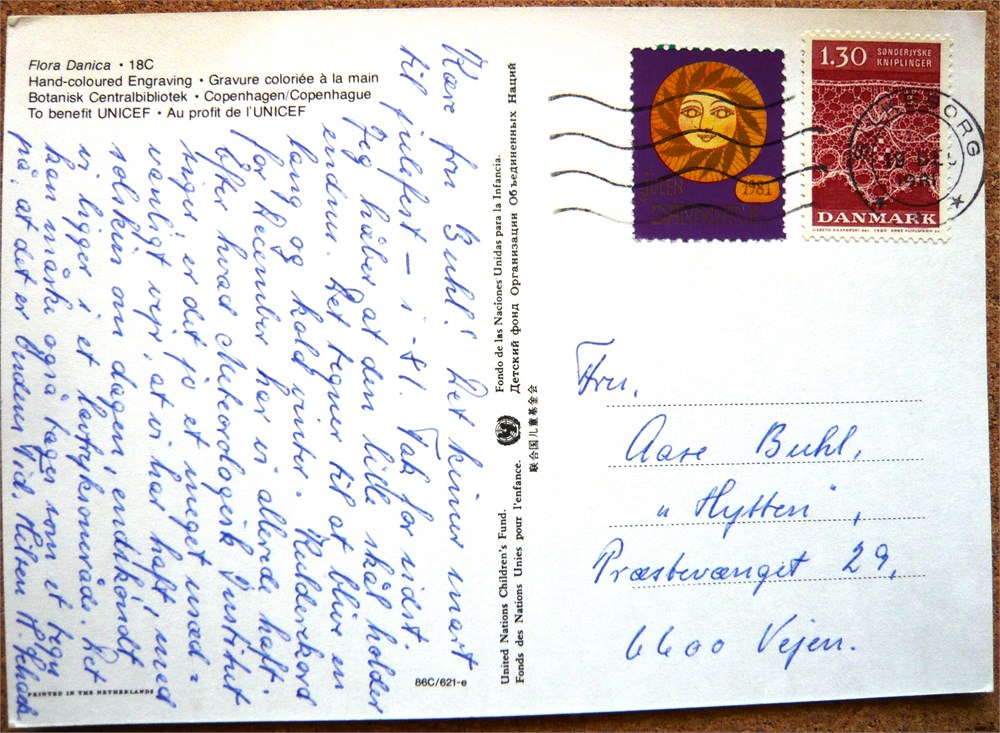 Flora Danica • 18C
Hand-coloured Engraving • Gravure coloriée à la main
Botanisk Centralbibliotek • Copenhagen/Copenhague
To benefit UNICEF • Au profit de l'UNICEF
Kære fru Buhl! Det kimer snart
til julefest – i -81. Tak for sidst.
Jeg håber at den lille skål holder
endnu. Det tegner til at blive en
lang og kold vinter. Kulderekord
for december har vi allerede haft.
Efter hvad Meteorologisk Institut
siger er det jo et meget usæd-
vanligt vejr, at vi har haft, med
solskin om dagen, endskøndt
vi ligger i et lavtryksområde. Det
kan måske også tages som et tegn
på, at det er Endens Tid. Hilsen H. Schack
PRINTED IN THE NETHERLANDS
86C/621-e
United Nations Children's Fund. Fondo de las Naciones Unidas para la Infancia.
Fonds des Nations Unies pour l'enfance. Детский фонд Организации Объединенных Наций
联合国儿童基金会
JULEN 1981
DANMARK
1.30 SØNDERJYSKE
KNIPLINGER
DANMARK
Fru,
Aase Buhl,
"Hytten",
Præstevænget 29,
6600 Vejen.